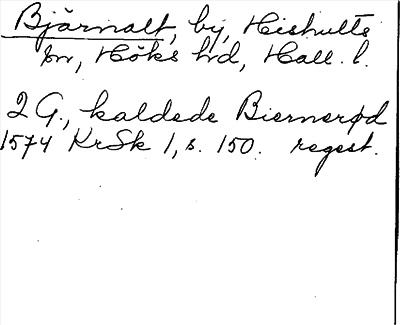 Bjärnalt, by, Hishults
sn, Höks hd, Hall. l.
2 G., kaldede Biernerød
1574 KrSk 1, s. 150. regest.